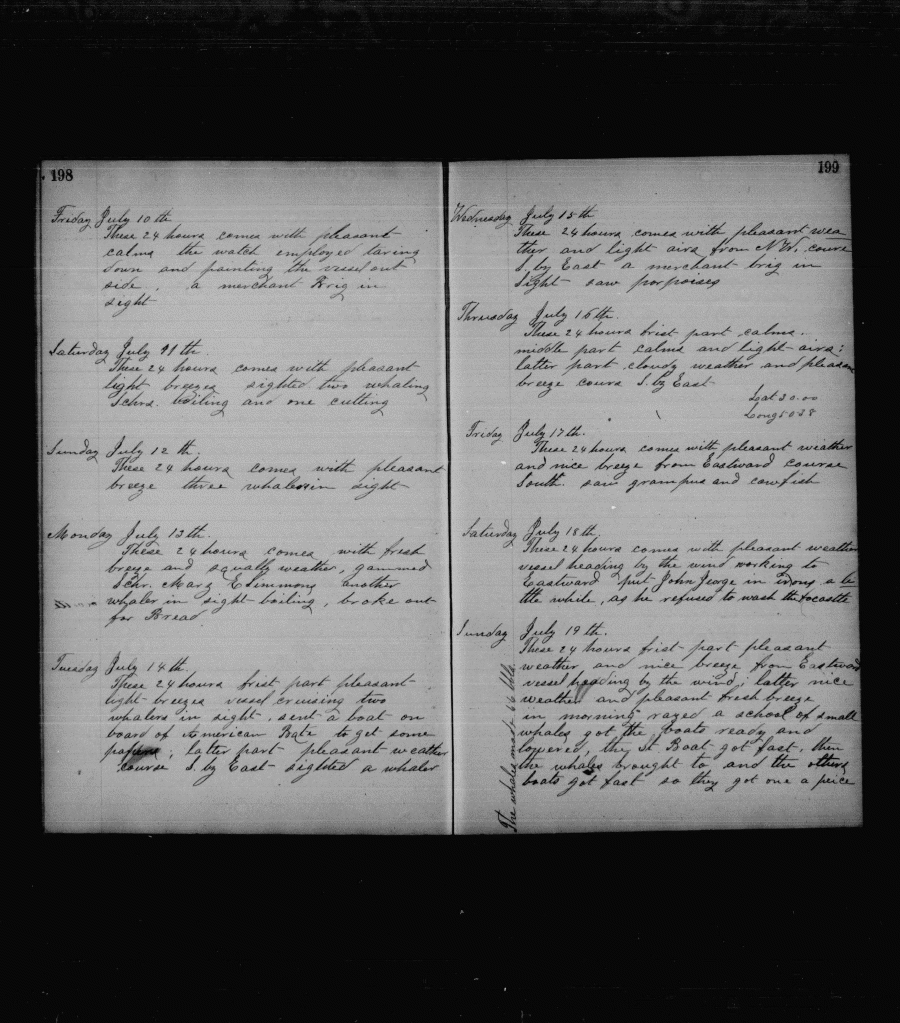 198
Friday July 10th
These 24 hours comes with pleasant
calms the watch employed taring
down and painting the vessel out
side, a merchant Brig in
sight
Saturday July 11th.
These 24 hours comes with pleasant
light breezes sighted two whaling
Schrs. boiling and one cutting
Sunday July 12th.
These 24 hours comes with pleasant
breeze three whalers in sight
Monday July 13th.
These 24 hours comes with fresh
breeze and squally weather, gammed
Schr. Mary E Simmons another
whaler in sight boiling, broke out
for Bread
Tuesday July 14th.
These 24 hours frist part pleasant
light breezes vessel cruising two
whalers in sight, sent a boat on
board of American Bate to get some
papers; latter part pleasant weather
course S. by East sighted a whaler
199
Wednesday July 15th
These 24 hours comes with pleasant wea
ther and light airs from N W. cours
S. by East a merchant brig in
sight saw porpoises
Thrusday July 16th.
These 24 hours frist part calms.
middle part calms and light airs;
latter part cloudy weather and pleasant
breeze cours S. by East
Lat 30.00
Long 50 38
Friday July 17th.
These 24 hours comes with pleasant weather
and nice breeze from Eastward course
South. saw grampus and cowfish
Saturday July 18th.
These 24 hours comes with pleasant weather
vessel heading by the wind working to
Eastward put John Jeorge in irons a li
ttle while, as he refused to wash the focastle
Sunday July 19th.
These 24 hours frist part pleasant
weather and nice breeze from Eastward
vessel heading by the wind; latter nice
weather and pleasant fresh breeze
in morning razed a school of small
whales got the boats ready and
lowered, the St. Boat got fast, then
the whales brought to and the others
boats got fast so they got one a peice
The whales made 46 bbls.